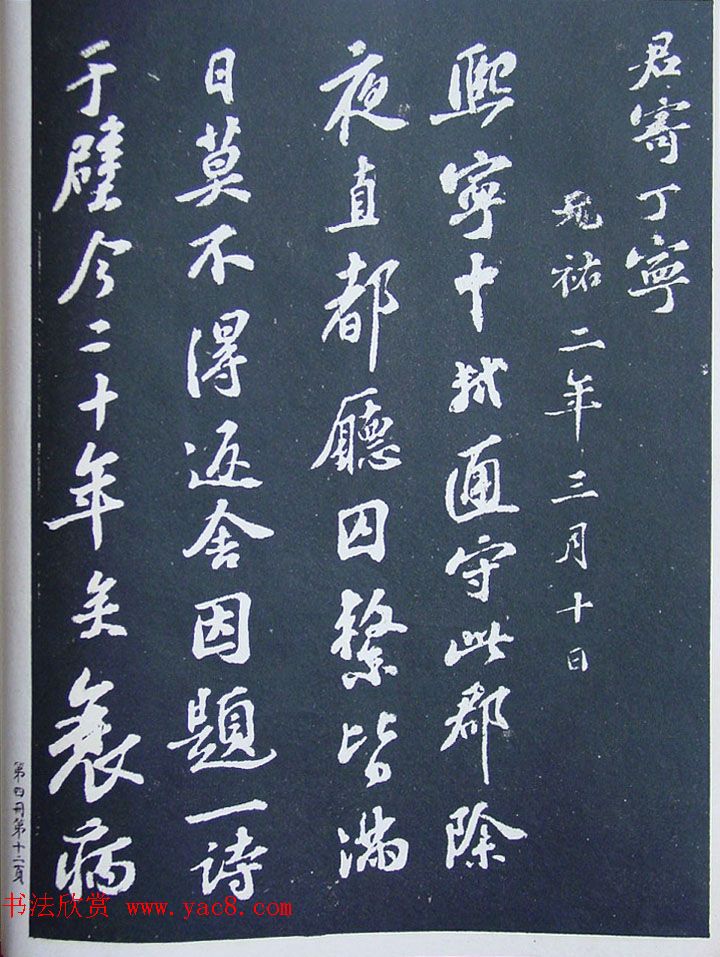 君寄丁寧
元祐二年三月十日
熙寧中軾通守此郡除
夜直都廳囚繫皆滿
日莫不得返舍因題一诗
于壁今二十年矣衰病
第四冊第十二頁
书法欣赏 www.yac8.com